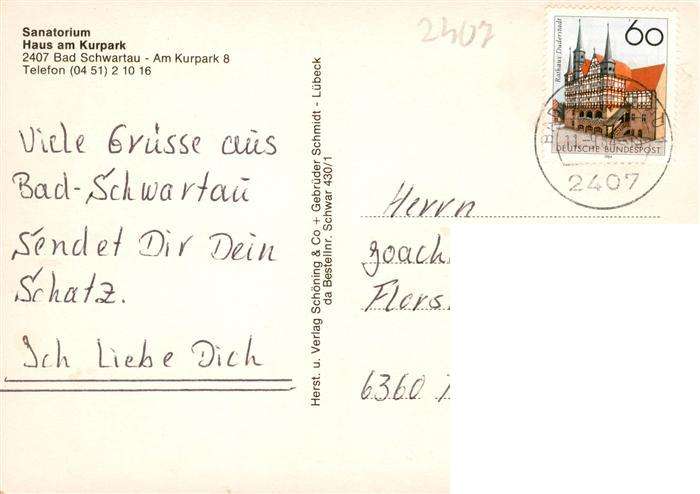 Sanatorium
Haus am Kurpark
2407 Bad Schwartau - Am Kurpark 8
Telefon (04 51) 2 10 16
Viele Grüsse aus
Bad-Schwartau
Sendet Dir Dein
Schatz.
Ich Liebe Dich
Herst. u. Verlag Schöning & Co + Gebrüder Schmidt - Lübeck
da Bestellnr. Schwar 430/1
2407
Rathaus Duderstadt
60
DEUTSCHE BUNDESPOST
BAD
2407
Herrn
Joach
Flors
6360